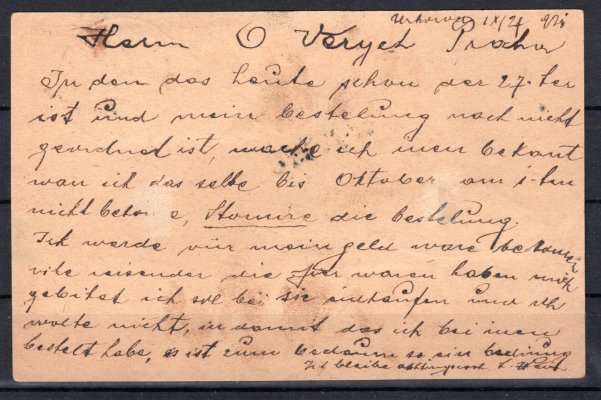 IX/27
Herrn O Veryeh Praha
In den das heute schon der 27. ter
ist und mein bestelung noch nicht
geordned ist, mache ich inen bekant
wan ich das selbe bis Oktober am 1-ten
nicht betome, Stomire die bestelung.
Ich werde vür mein geld ware bekomen
vile reisender die Ihr waren haben mich
gebitet ich sol bei sie einkaufen und ich
wolte nicht, in damit das ich bei inen
bestelt habe, es ist zum bedauern so ein bedinung
Ich bleibe